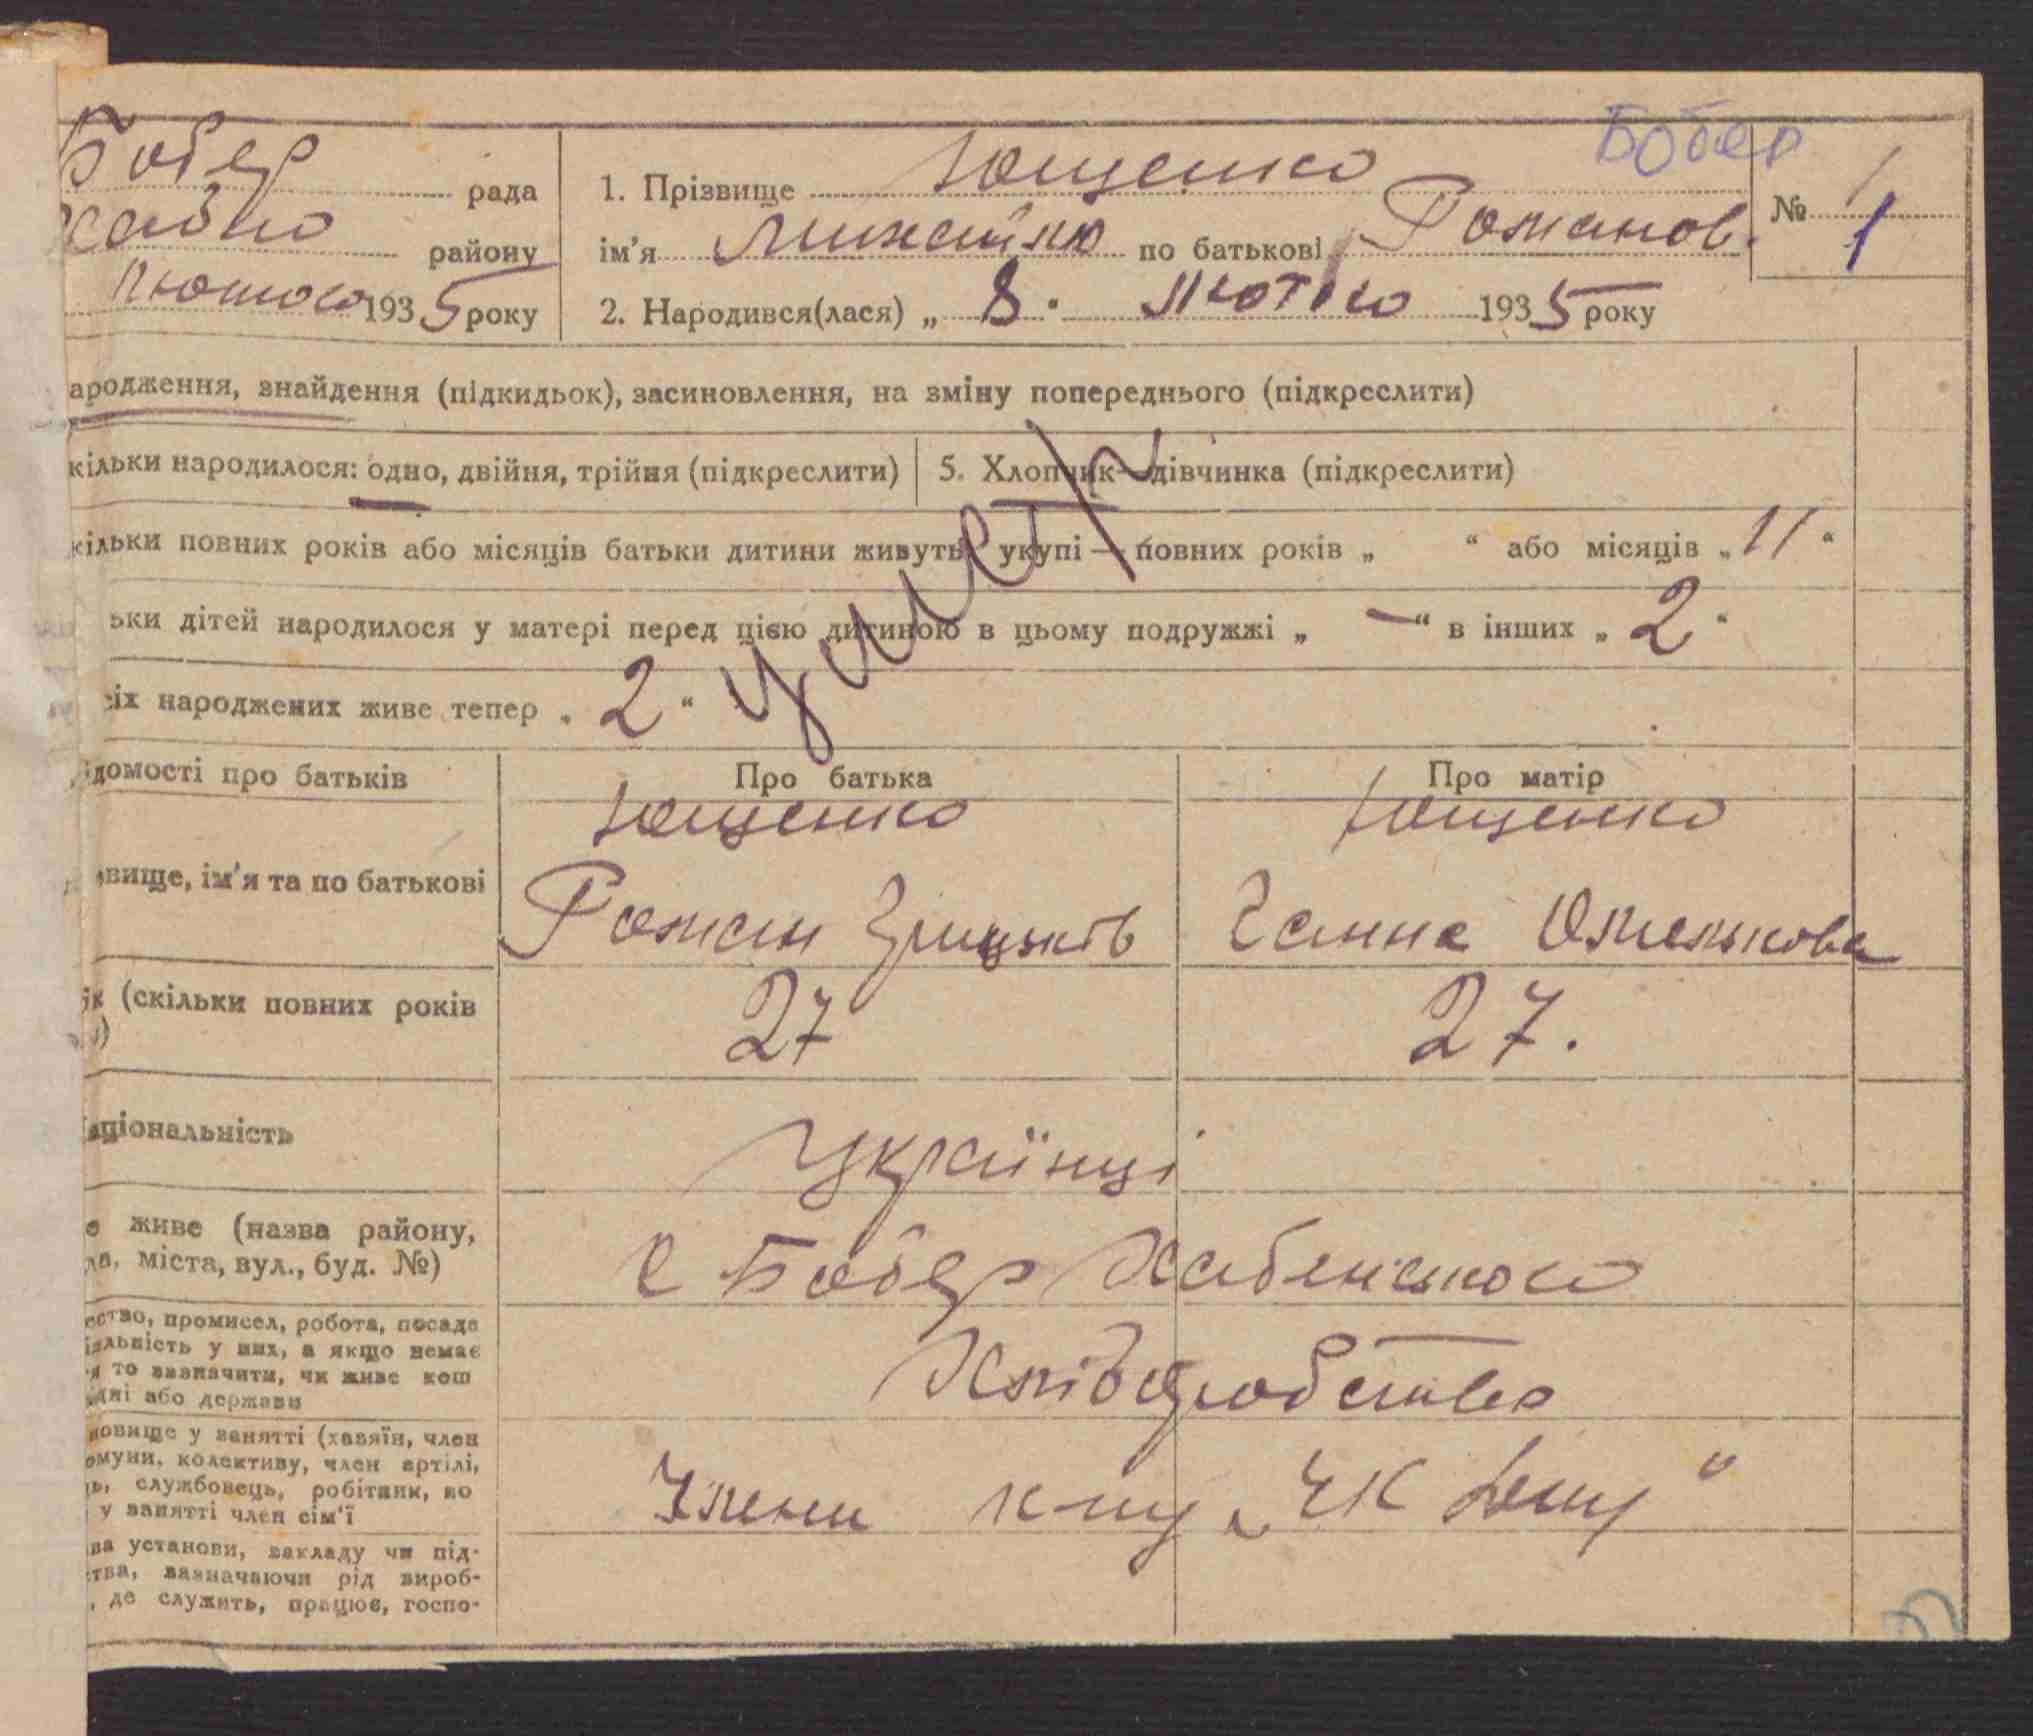 Бобер
Бобер рада
району
Лютого 1935 року
1. Прізвище Ющенко
№ 1
ім'я Михайло по батькові Романов.
2. Народився(лася) „ 8 " лютого 1935 року
ародження, знайдення (підкидьок), засиновлення, на зміну попереднього (підкреслити)
кільки народилося: одно, двійня, трійня (підкреслити) 5. Хлопчик—дівчинка (підкреслити)
кільки повних років або місяців батьки дитини живуть укупі — повних років „ “ або місяців „ 11 “
ьки дітей народилося у матері перед цією дитиною в цьому подружжі „ — “ в інших „ 2 "
сіх народжених живе тепер „ 2 “
умер
ідомості про батьків Про батька Про матір
Ющенко Ющенко
вище, ім'я та по батькові Роман Грицьків Ганна Омелькова
ік (скільки повних років 27 27.
аціональність Українці
е живе (назва району,
ла, міста, вул., буд. №) с Бобер Хабенського
ство, промисел, робота, посада
іяльність у них, а якщо немає
я то зазначити, чи живе кош
дні або держави Хліборобство
новище у занятті (хазяїн, член
омуни, колективу, член артілі,
ь, службовець, робітник, по
у занятті член сім'ї Члени к-пу „ЧК
ва установи, закладу чи під-
тва, зазначаючи рід вироб-
, де служить, працює, госпо-